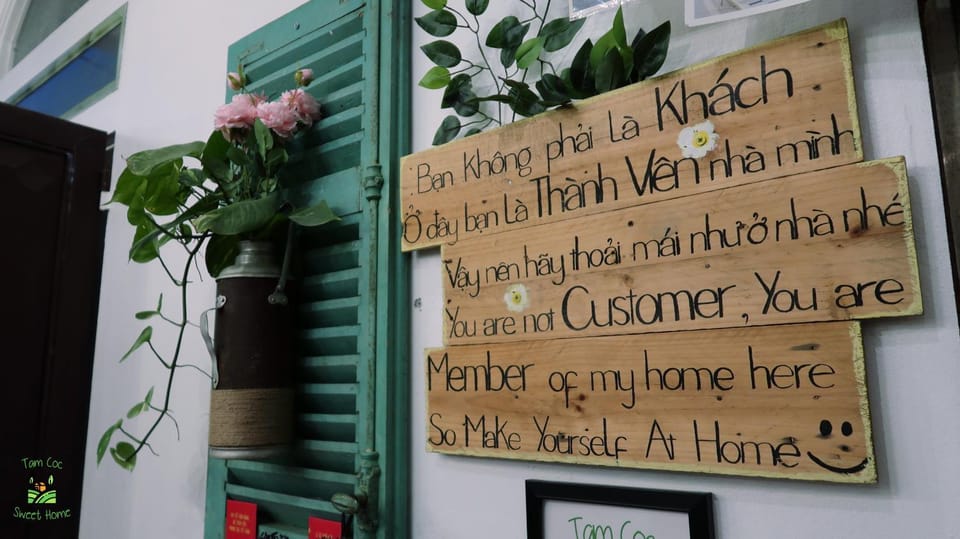 Bạn Không phải Là Khách
Ở đây bạn Là Thành Viên nhà mình
Vậy nên hãy thoải mái như ở nhà nhé
You are not Customer, You are
Member of my home here
So Make Yourself At Home
Tam Coc
Tam Coc
Sweet Home